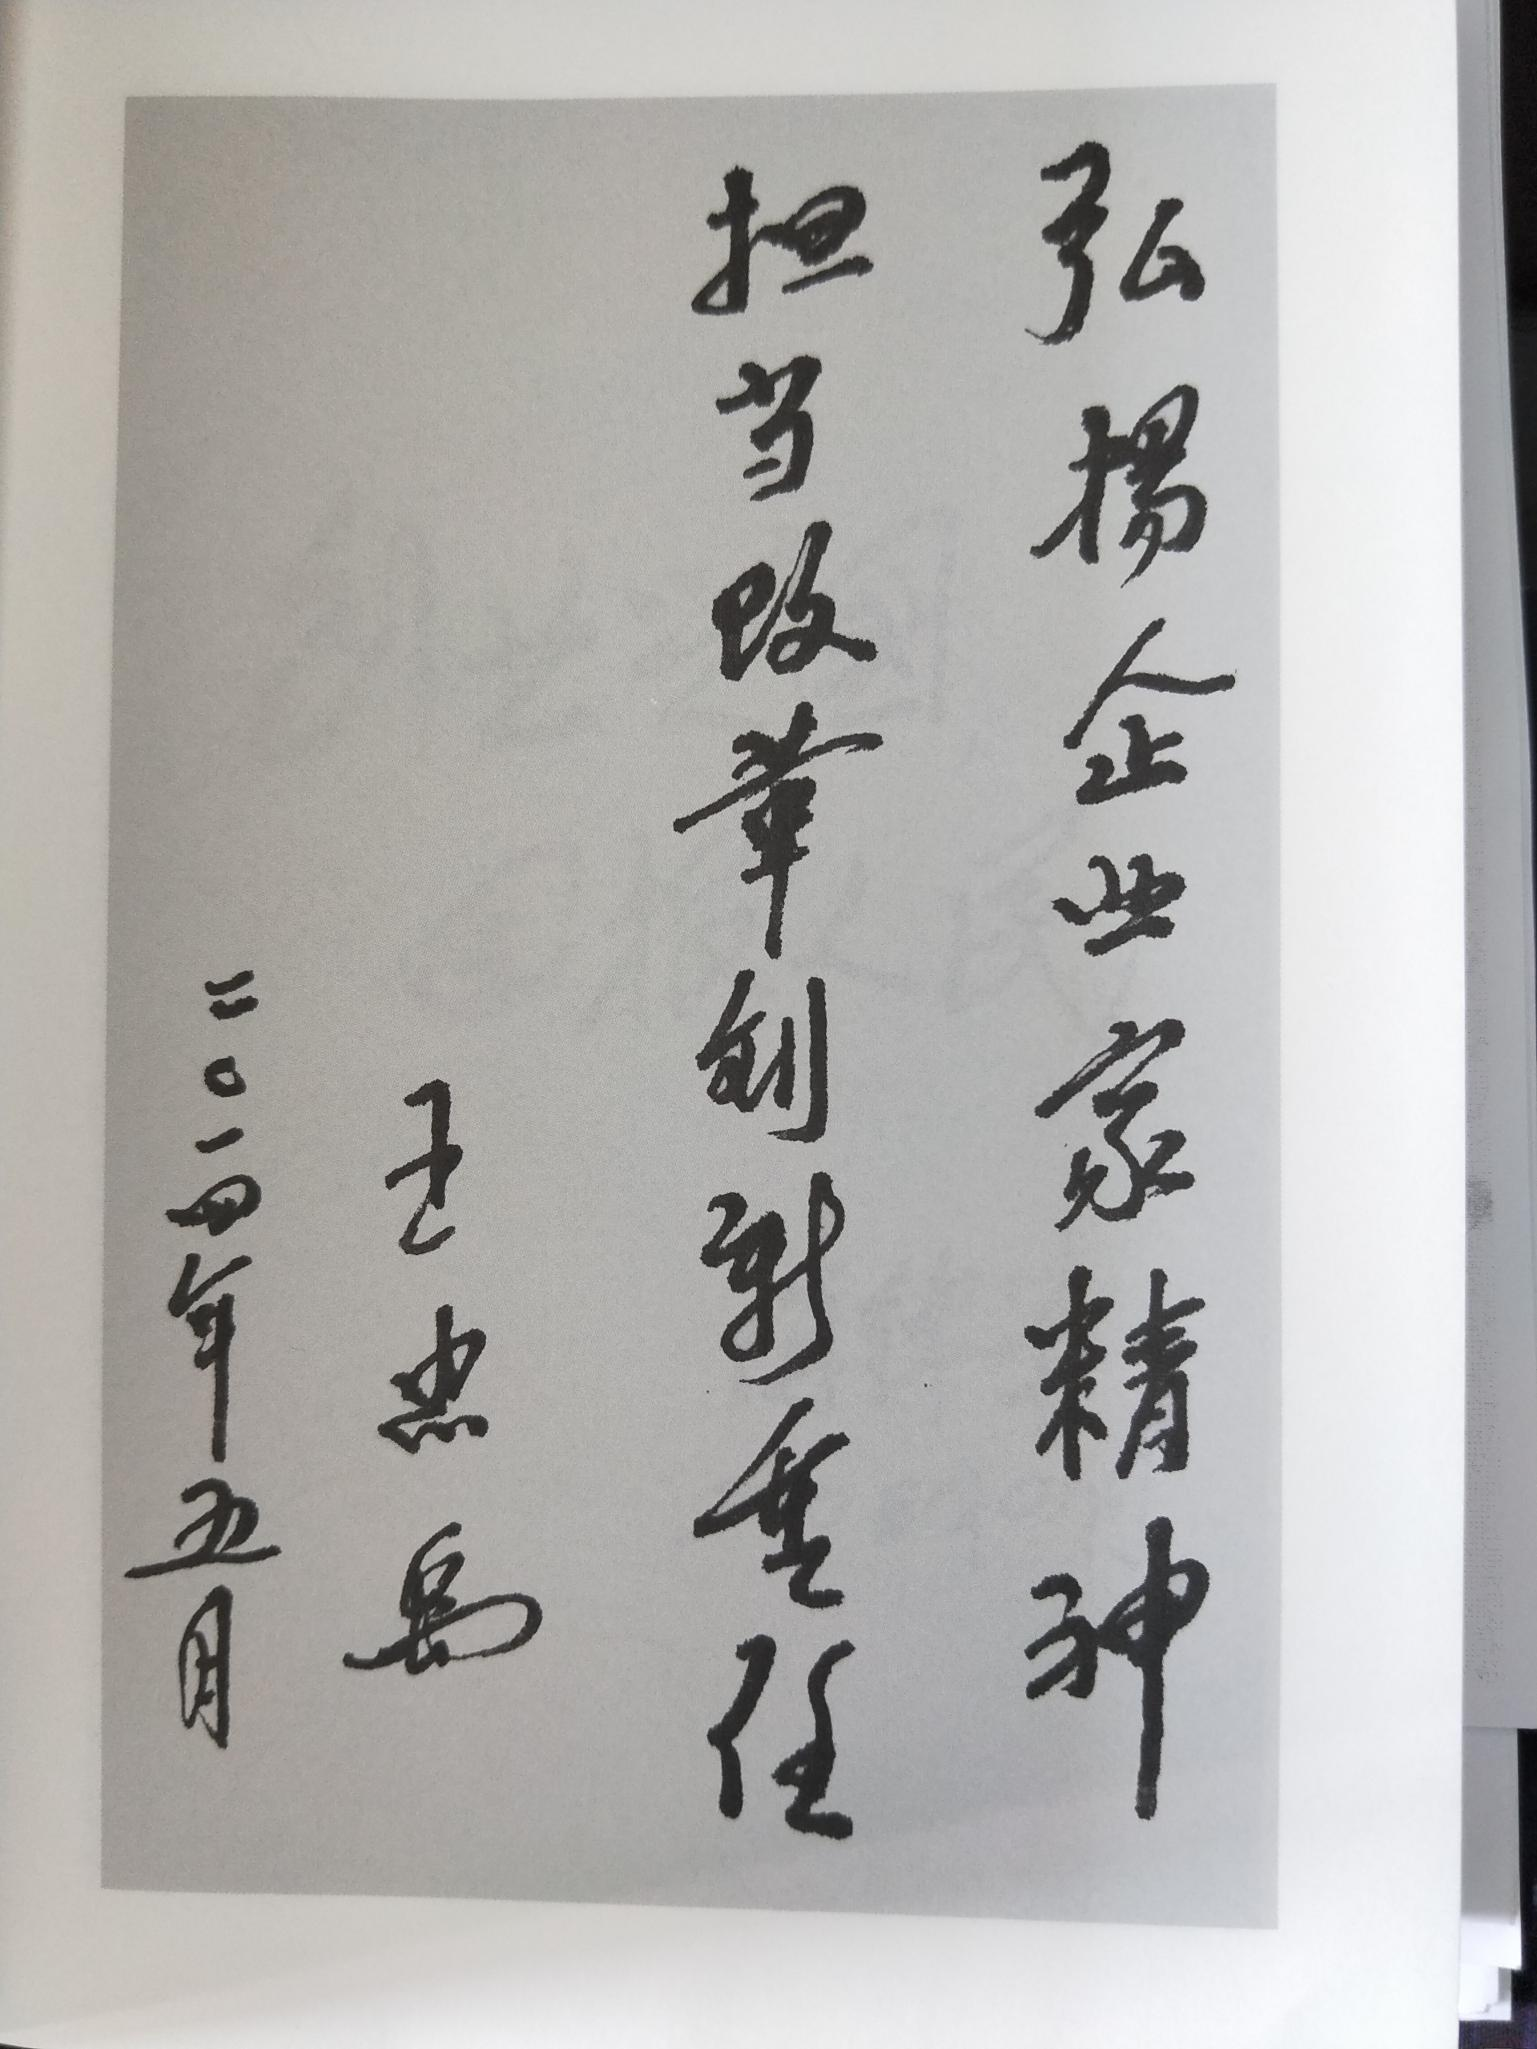 弘扬企业家精神
担当改革创新重任
王忠禹
二〇一四年五月